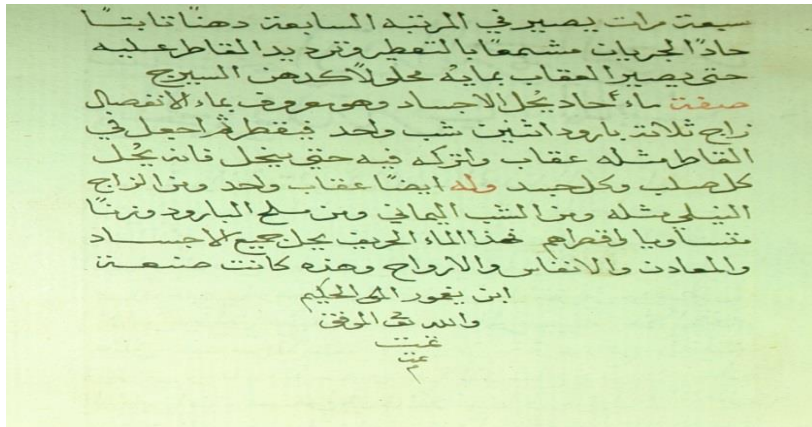 سبعة مرات يصير في المرتبة السابعة دهنًا ثابتًا
حادًا لجريان مشتمعًا بالتقطير وترديد القاطر عليه
حتى يصير العقاب بمايه محلولاً كدهن السيرج
صفة ماء حاد يحل الاجساد وهو معروف بماء الانفصال
زاج ثلاثة بارود اثنين شب واحد فيقطر ثم اجعل في
القاطر مثله عقاب واتركه فيه حتى ينحل فانه يحل
كل صلب وكل جسد وله ايضًا عقاب واحد ومن الزاج
النيلي مثله ومن الشب اليماني ومن ملح البارود وزنًا
متساويا واقطرهم فهذا الماء الحريف يحل جميع الاجساد
والمعادن والانفاس والارواح وهذه كانت صنعة
ابن يغمور الحكيم
والله الموفق
تمت
تمت
م